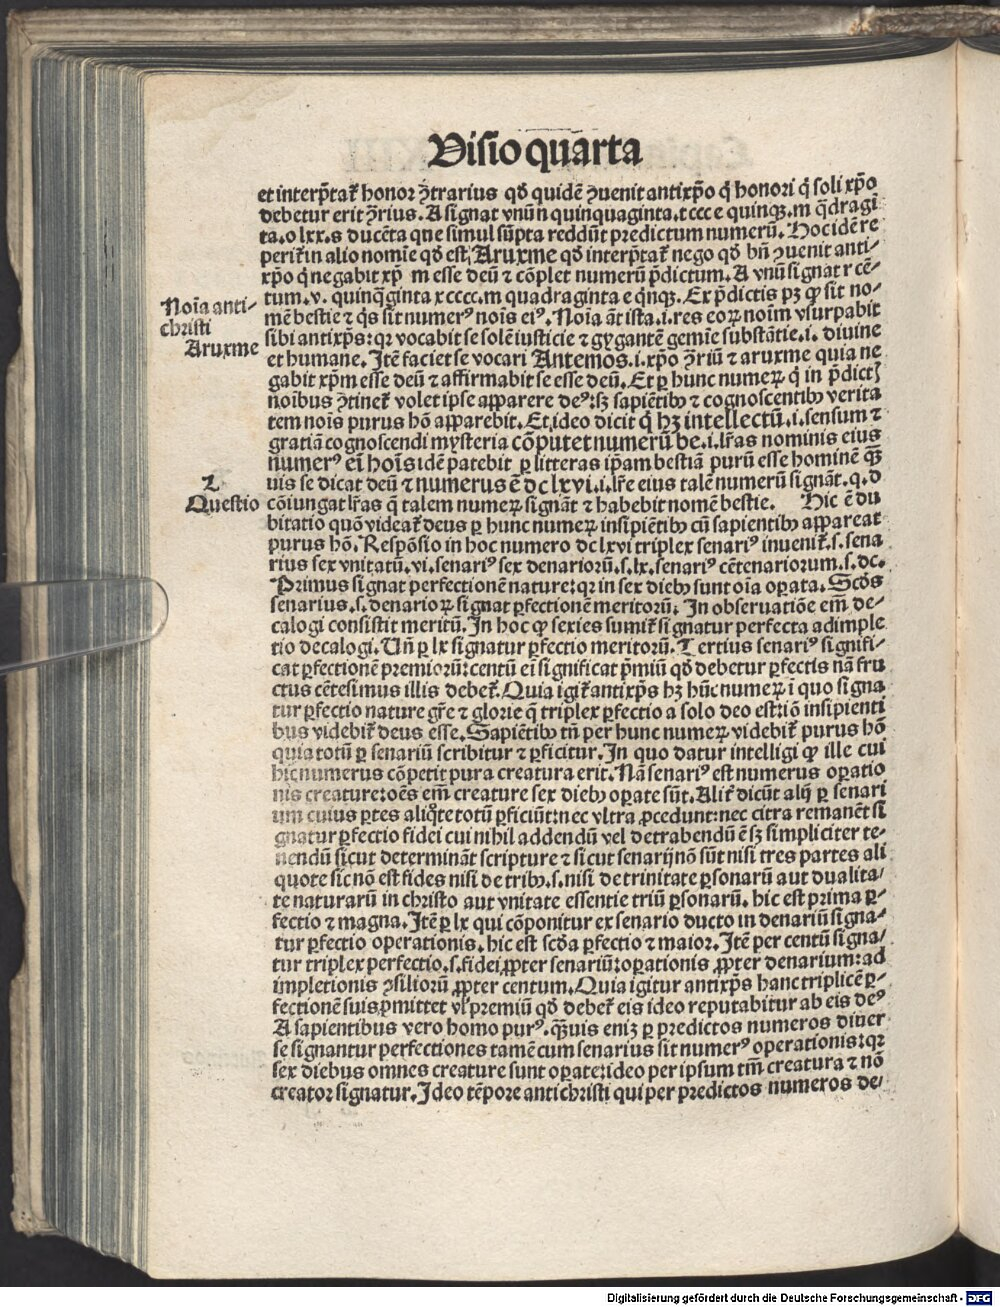 Visio quarta
et interp̄tat᷑ honor ꝯtrarius qd̄ quidē ꝯuenit antixp̄o q̇ honori q̇ soli xp̄o
debetur erit ꝯ̄rius. A signat vnū n quinquaginta. t ccc e quinqꝫ. m q̄dragī
ta. o lxx. s ducēta que simul sūpta reddūt predictum numerū. Hoc idē re
perit᷑ in alio nomīe qd̄ est, Aruxme qd̄ interp̄tat᷑ nego qd̄ bn̄ ꝯuenit anti-
xp̄o q̇ negabit xp̄m esse deū ⁊ cōplet numerū p̄dictum. A vnū signat r cē-
tum. v. quinq̄ginta x cccc. m quadraginta e q̇nqꝫ. Ex p̄dictis pꝫ ꝙ sit no-
mē bestie ⁊ q̇s sit numerꝰ nois eiꝰ. Noīa āt ista. i. res eoꝝ noīm vsurpabit
sibi antixp̄s: qr vocabit se solē iusticie ⁊ gygantē gemīe substātie. i. diuine
et humane. Itē faciet se vocari Antemos. i. xp̄o ꝯ̄riū ⁊ aruxme quia ne
gabit xp̄m esse deū ⁊ affirmabit se esse deū. Et ꝑ hunc numeꝝ q̇ in p̄dict
noībus ꝯtinet᷑ volet ipse apparere deꝰ: sꝫ sapiētibꝫ ⁊ cognoscentibꝫ verita
tem nois purus hō apparebit. Et ideo dicit q̇ hꝫ intellectū. i. sensum ⁊
gratiā cognoscendi mysteria cōputet numerū be. i. lr̄as nominis eius
numerꝰ ei hoīs idē patebit ꝑ litteras ip̄am bestiā purū esse hominē q̄ꝫ
uis se dicat deū ⁊ numerus ē dc lxvi. i. lr̄e eius talē numerū signāt. q. d
cōiungat lr̄as q̄ talem numeꝝ signāt ⁊ habebit nomē bestie. Hic ē du
bitatio quō videat᷑ deus ꝑ hunc numeꝝ insipiētibꝫ cū sapientibꝫ appareat
purus hō. Respōsio in hoc numero dc lxvi triplex senariꝰ inuenit᷑. s. sena
rius sex vnitatū. vi. senariꝰ sex denariorū. s. lx. senariꝰ cētenariorum. s. dc.
Primus signat perfectionē nature: qr in sex diebꝫ sunt oīa oꝑata. Scd̄s
senarius. s. denarioꝝ signat ꝑfectionē meritorū. In obseruatiōe em̄ de-
calogi consistit meritū. In hoc ꝙ sexies sumit᷑ signatur perfecta adimple
tio decalogi. Vn̄ ꝑ lx signatur ꝑfectio meritorū. Tertius senariꝰ signifi-
cat ꝑfectionē premiorū: centū ei significat p̄miū qd̄ debetur ꝑfectis nā fru
ctus cētesimus illis debet᷑. Quia igit᷑ antixp̄s hꝫ hūc numeꝝ ī quo signa
tur ꝑfectio nature gr̄e ⁊ glorie q̄ triplex ꝑfectio a solo deo est: iō insipienti
bus videbit᷑ deus esse. Sapiētibꝫ tn̄ per hunc numeꝝ videbit᷑ purus hō
quia totū ꝑ senariū scribitur ⁊ ꝑficitur. In quo datur intelligi ꝙ ille cui
hic numerus cōpetit pura creatura erit. Nā senariꝰ est numerus oꝑatio
nis creature: oēs em̄ creature sex diebꝫ oꝑate sūt. Alit᷑ dicūt alij ꝑ senari
um cuius ꝑtes aliq̇te totū ꝑficiūt: nec vltra ꝓcedunt: nec citra remanēt si
gnatur ꝑfectio fidei cui nihil addendū vel detrahendū ē sꝫ simpliciter te-
nendū sicut determināt scripture ⁊ sicut senarij nō sūt nisi tres partes ali
quote sic nō est fides nisi de tribꝫ. s. nisi de trinitate ꝑsonarū aut dualita/
te naturarū in christo aut vnitate essentie triū ꝑsonarū. hic est prima ꝑ-
fectio ⁊ magna. Itē ꝑ lx qui cōponitur ex senario ducto in denariū signa-
tur ꝑfectio operationis. hic est scd̄a ꝑfectio ⁊ maior. Itē per centū signa/
tur triplex perfectio. s. fidei ꝓpter senariū: oꝑationis ꝓpter denarium: ad
impletionis ꝯsiliorū ꝓpter centum. Quia igitur antixp̄s hanc triplicē ꝑ-
fectionē suis ꝓmittet vl̓ premiū qd̄ debet᷑ eis ideo reputabitur ab eis deꝰ
A sapientibus vero homo purꝰ. q̄ꝫuis enīꝫ ꝑ predictos numeros diuer
se signantur perfectiones tamē cum senarius sit numerꝰ operationis: qr
sex diebus omnes creature sunt oꝑate: ideo per ipsum tm̄ creatura ⁊ nō
creator signatur. Ideo tēpore antichristi qui per predictos numeros de/
Noīa anti-
christi
Aruxme
2
Questio
Digitalisierung gefördert durch die Deutsche Forschungsgemeinschaft - DFG